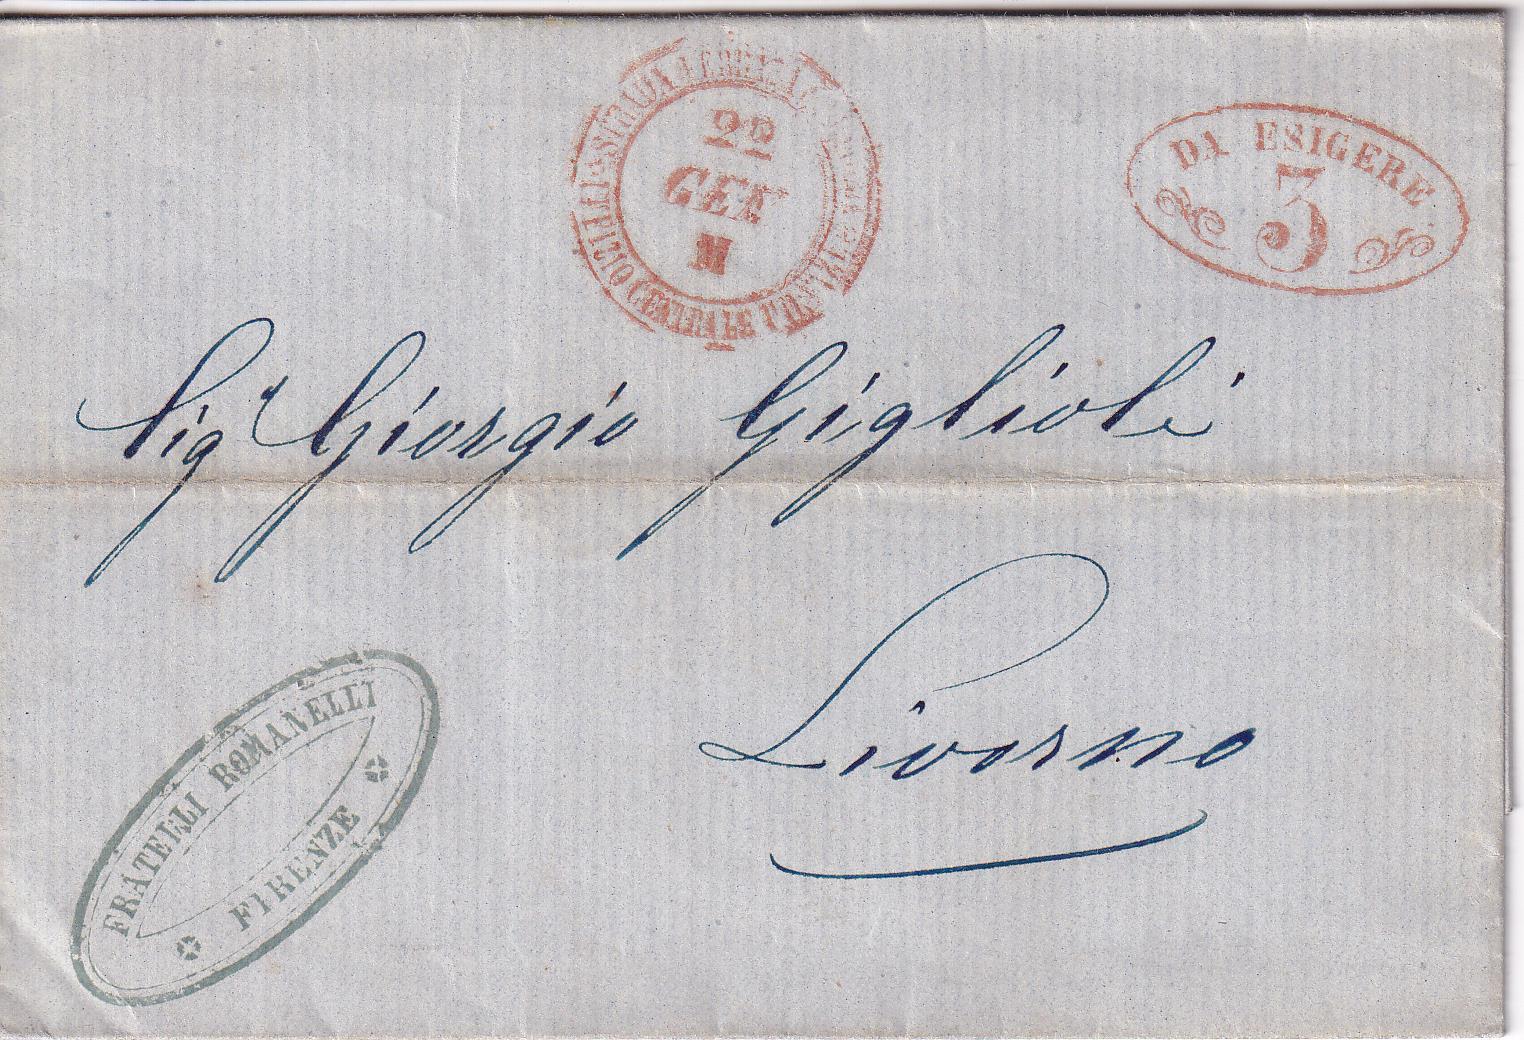 STRADA FERRATA
UFFICIO CENTRALE FIRENZE
22
GEN
M
DA ESIGERE
3
Sigr Giorgio Giglioli
Livorno
FRATELLI ROMANELLI
FIRENZE